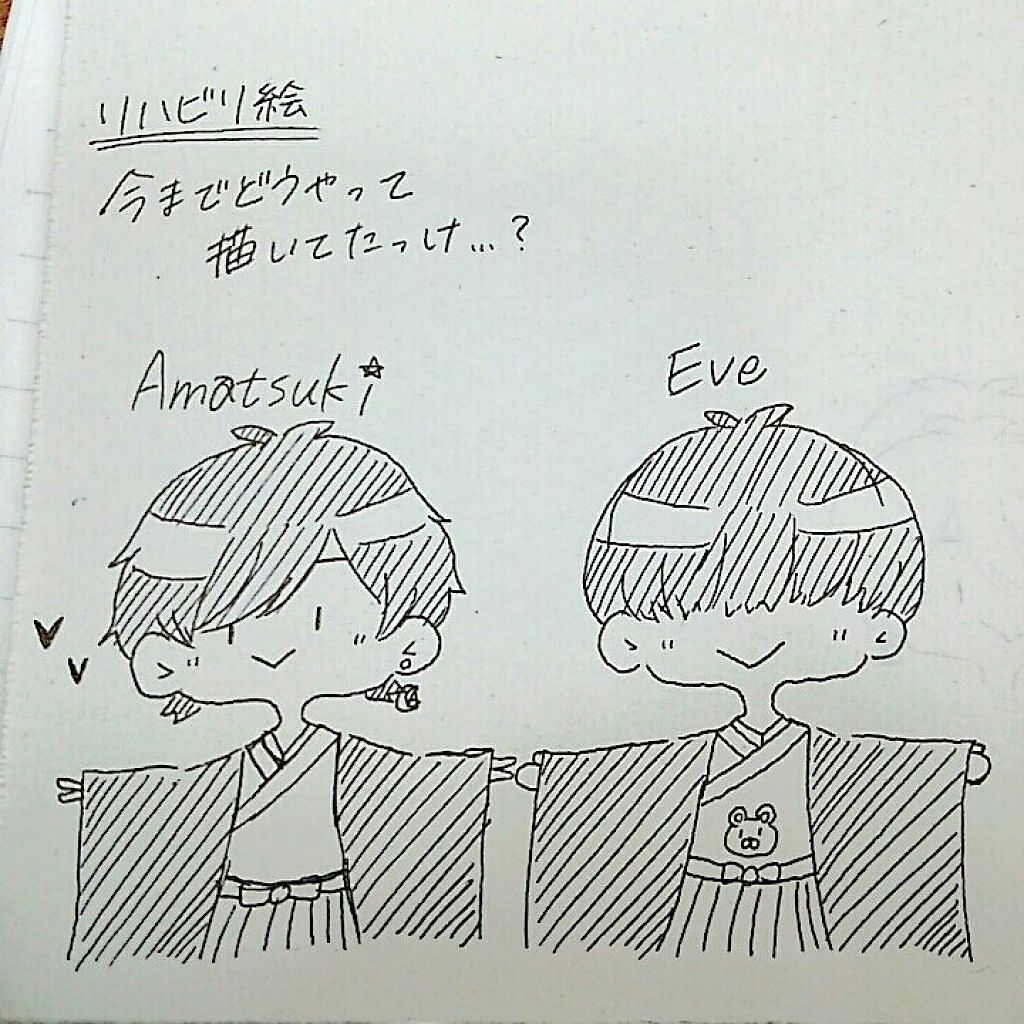 リハビリ絵
今までどうやって
描いてたっけ…?
Amatsuki
Eve